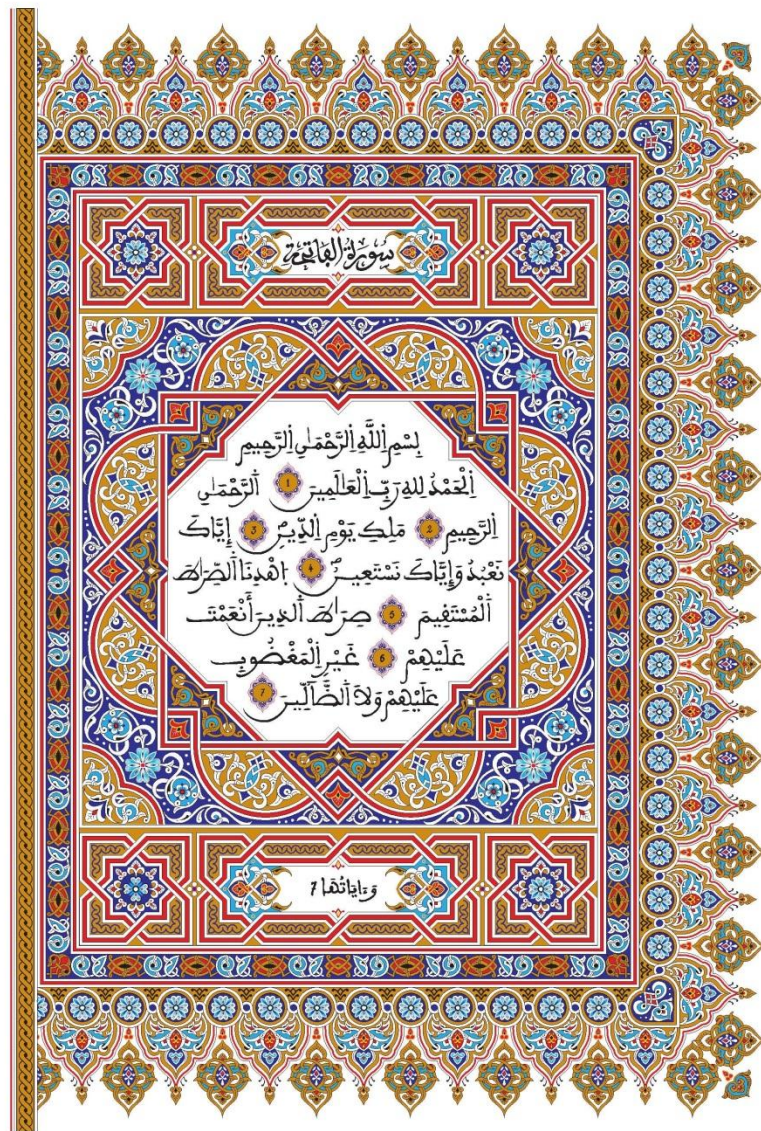 سُورَةُ الْفَاتِحَة
بِسْمِ اِللَّهِ اِلرَّحْمَٰنِ اِلرَّحِيمِ
اِلْحَمْدُ لِلهِ رَبِّ اِلْعَٰلَمِينَ 1 اَلرَّحْمَٰنِ
اِلرَّحِيمِ 2 مَلِكِ يَوْمِ اِلدِّينِ 3 إِيَّاكَ
نَعْبُدُ وَإِيَّاكَ نَسْتَعِينُ 4 اِهْدِنَا اَلصِّرَٰطَ
اَلْمُسْتَقِيمَ 5 صِرَٰطَ اَلذِينَ أَنْعَمْتَ
عَلَيْهِمْ 6 غَيْرِ اِلْمَغْضُوبِ
عَلَيْهِمْ وَلَا اَلضَّآلِّينَ 7
وَءَايَاتُهَا 7